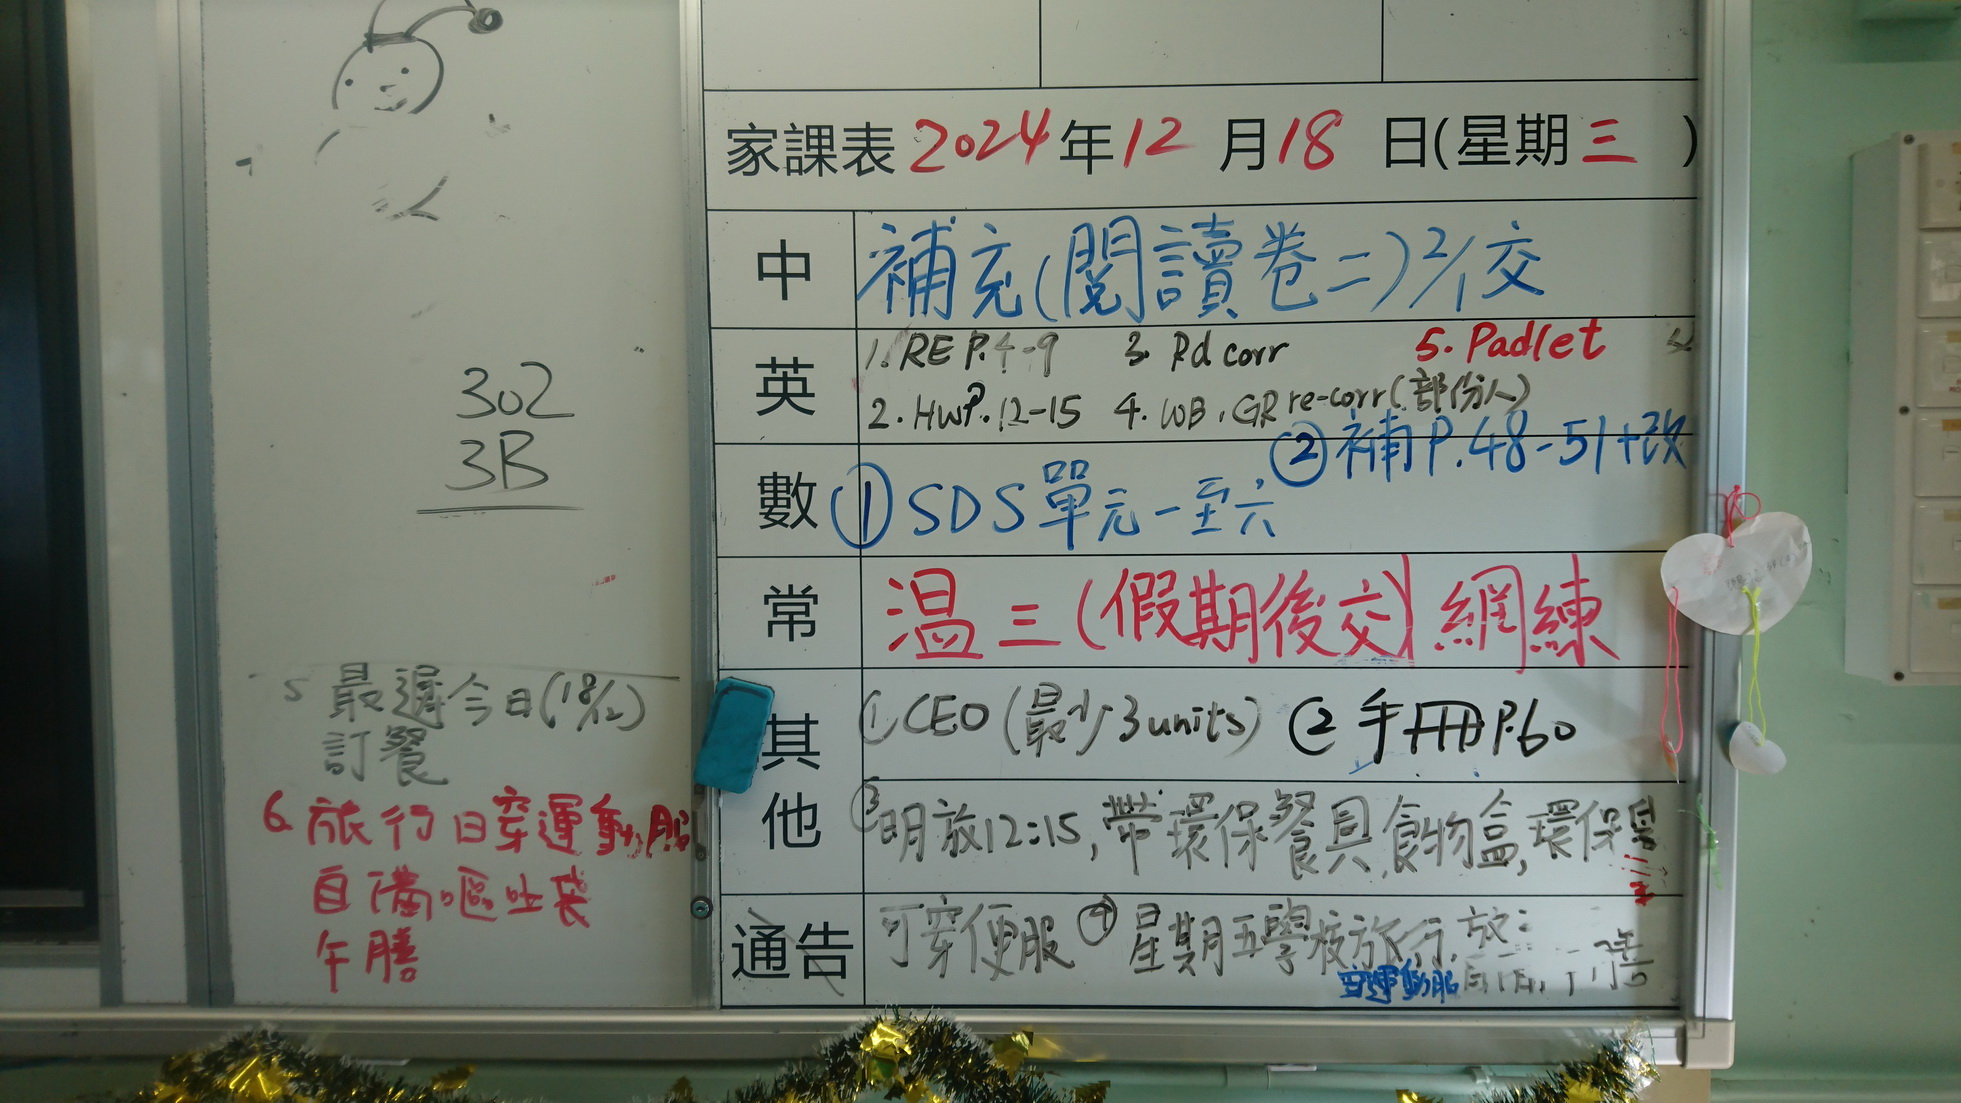 302
3B
最遲今日(18/12)
訂餐
6. 旅行日穿運動服
自備嘔吐袋
午膳
家課表 2024年12月18日(星期三)
中 補充(閱讀卷二) 2/1交
英 1. RE P.4-9 3. Rd corr 5. Padlet
2. HW P.12-15 4. WB, GR re-corr (部份人)
數 ① SDS單元一至六 ② 補P.48-51+改
常 温三(假期後交) 網練
其他 ① CEO (最少3 units) ② 手冊P.60
③ 明放12:15, 帶環保餐具,食物盒,環保
通告 可穿便服 ④ 星期五學校旅行, 放
穿運動服